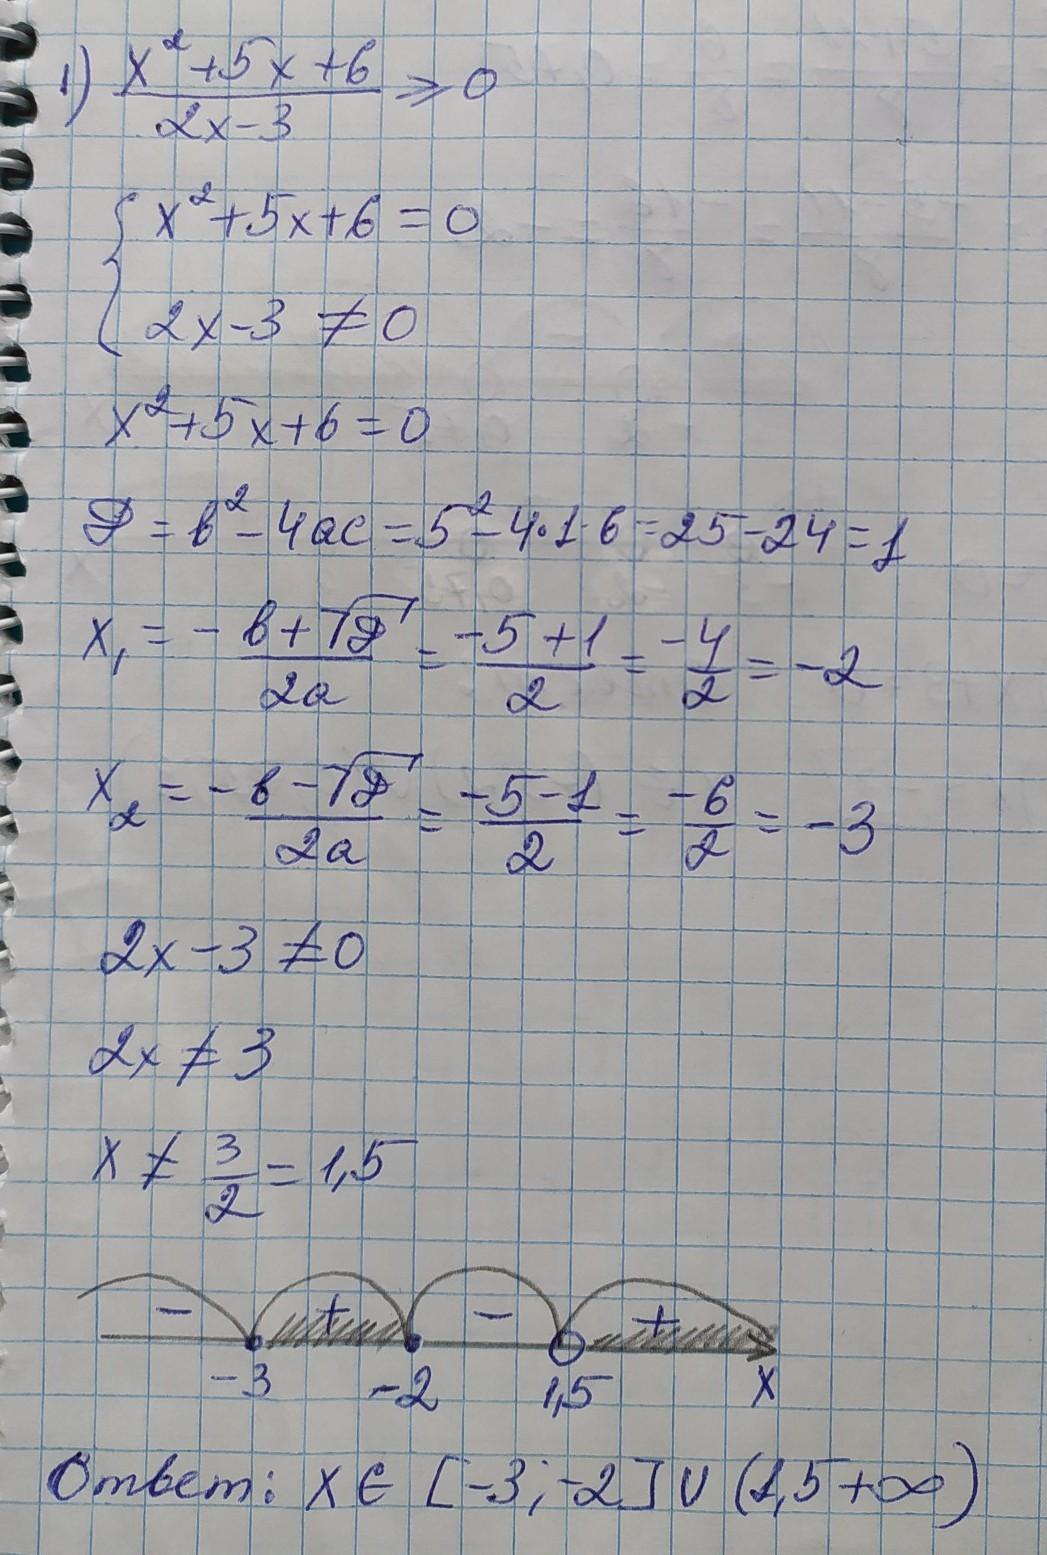 1) (x² + 5x + 6) / (2x - 3) ≥ 0
{ x² + 5x + 6 = 0
2x - 3 ≠ 0
x² + 5x + 6 = 0
D = b² - 4ac = 5² - 4·1·6 = 25 - 24 = 1
x₁ = - (b + √D) / 2a = (-5 + 1) / 2 = -4 / 2 = -2
x₂ = - (b - √D) / 2a = (-5 - 1) / 2 = -6 / 2 = -3
2x - 3 ≠ 0
2x ≠ 3
x ≠ 3/2 = 1,5
- + - +
-3 -2 1,5 x
Ответ: x ∈ [-3; -2] ∪ (1,5 +∞)